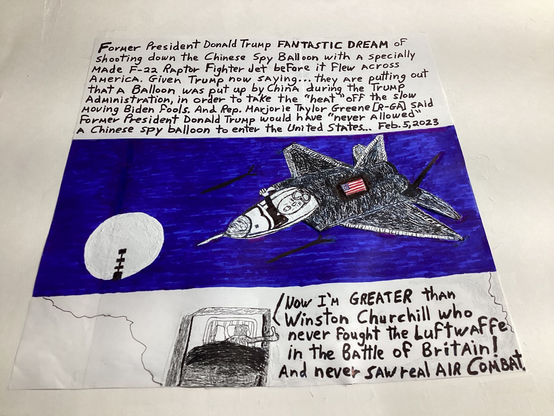 Former President Donald Trump FANTASTIC DREAM of
shooting down the Chinese Spy Balloon with a specially
Made F-22 Raptor Fighter Jet before it Flew across
America. Given Trump now saying... they are putting out
that a Balloon was put up by China during the Trump
Administration, in order to take the "heat" off the slow
moving Biden Fools. And Rep. Marjorie Taylor Greene [R-GA] said
Former President Donald Trump would have "never allowed"
a Chinese spy balloon to enter the United States... Feb. 5, 2023
Now I'm GREATER than
Winston Churchill who
never Fought the Luftwaffe
in the Battle of Britain!
And never saw real AIR COMBAT.